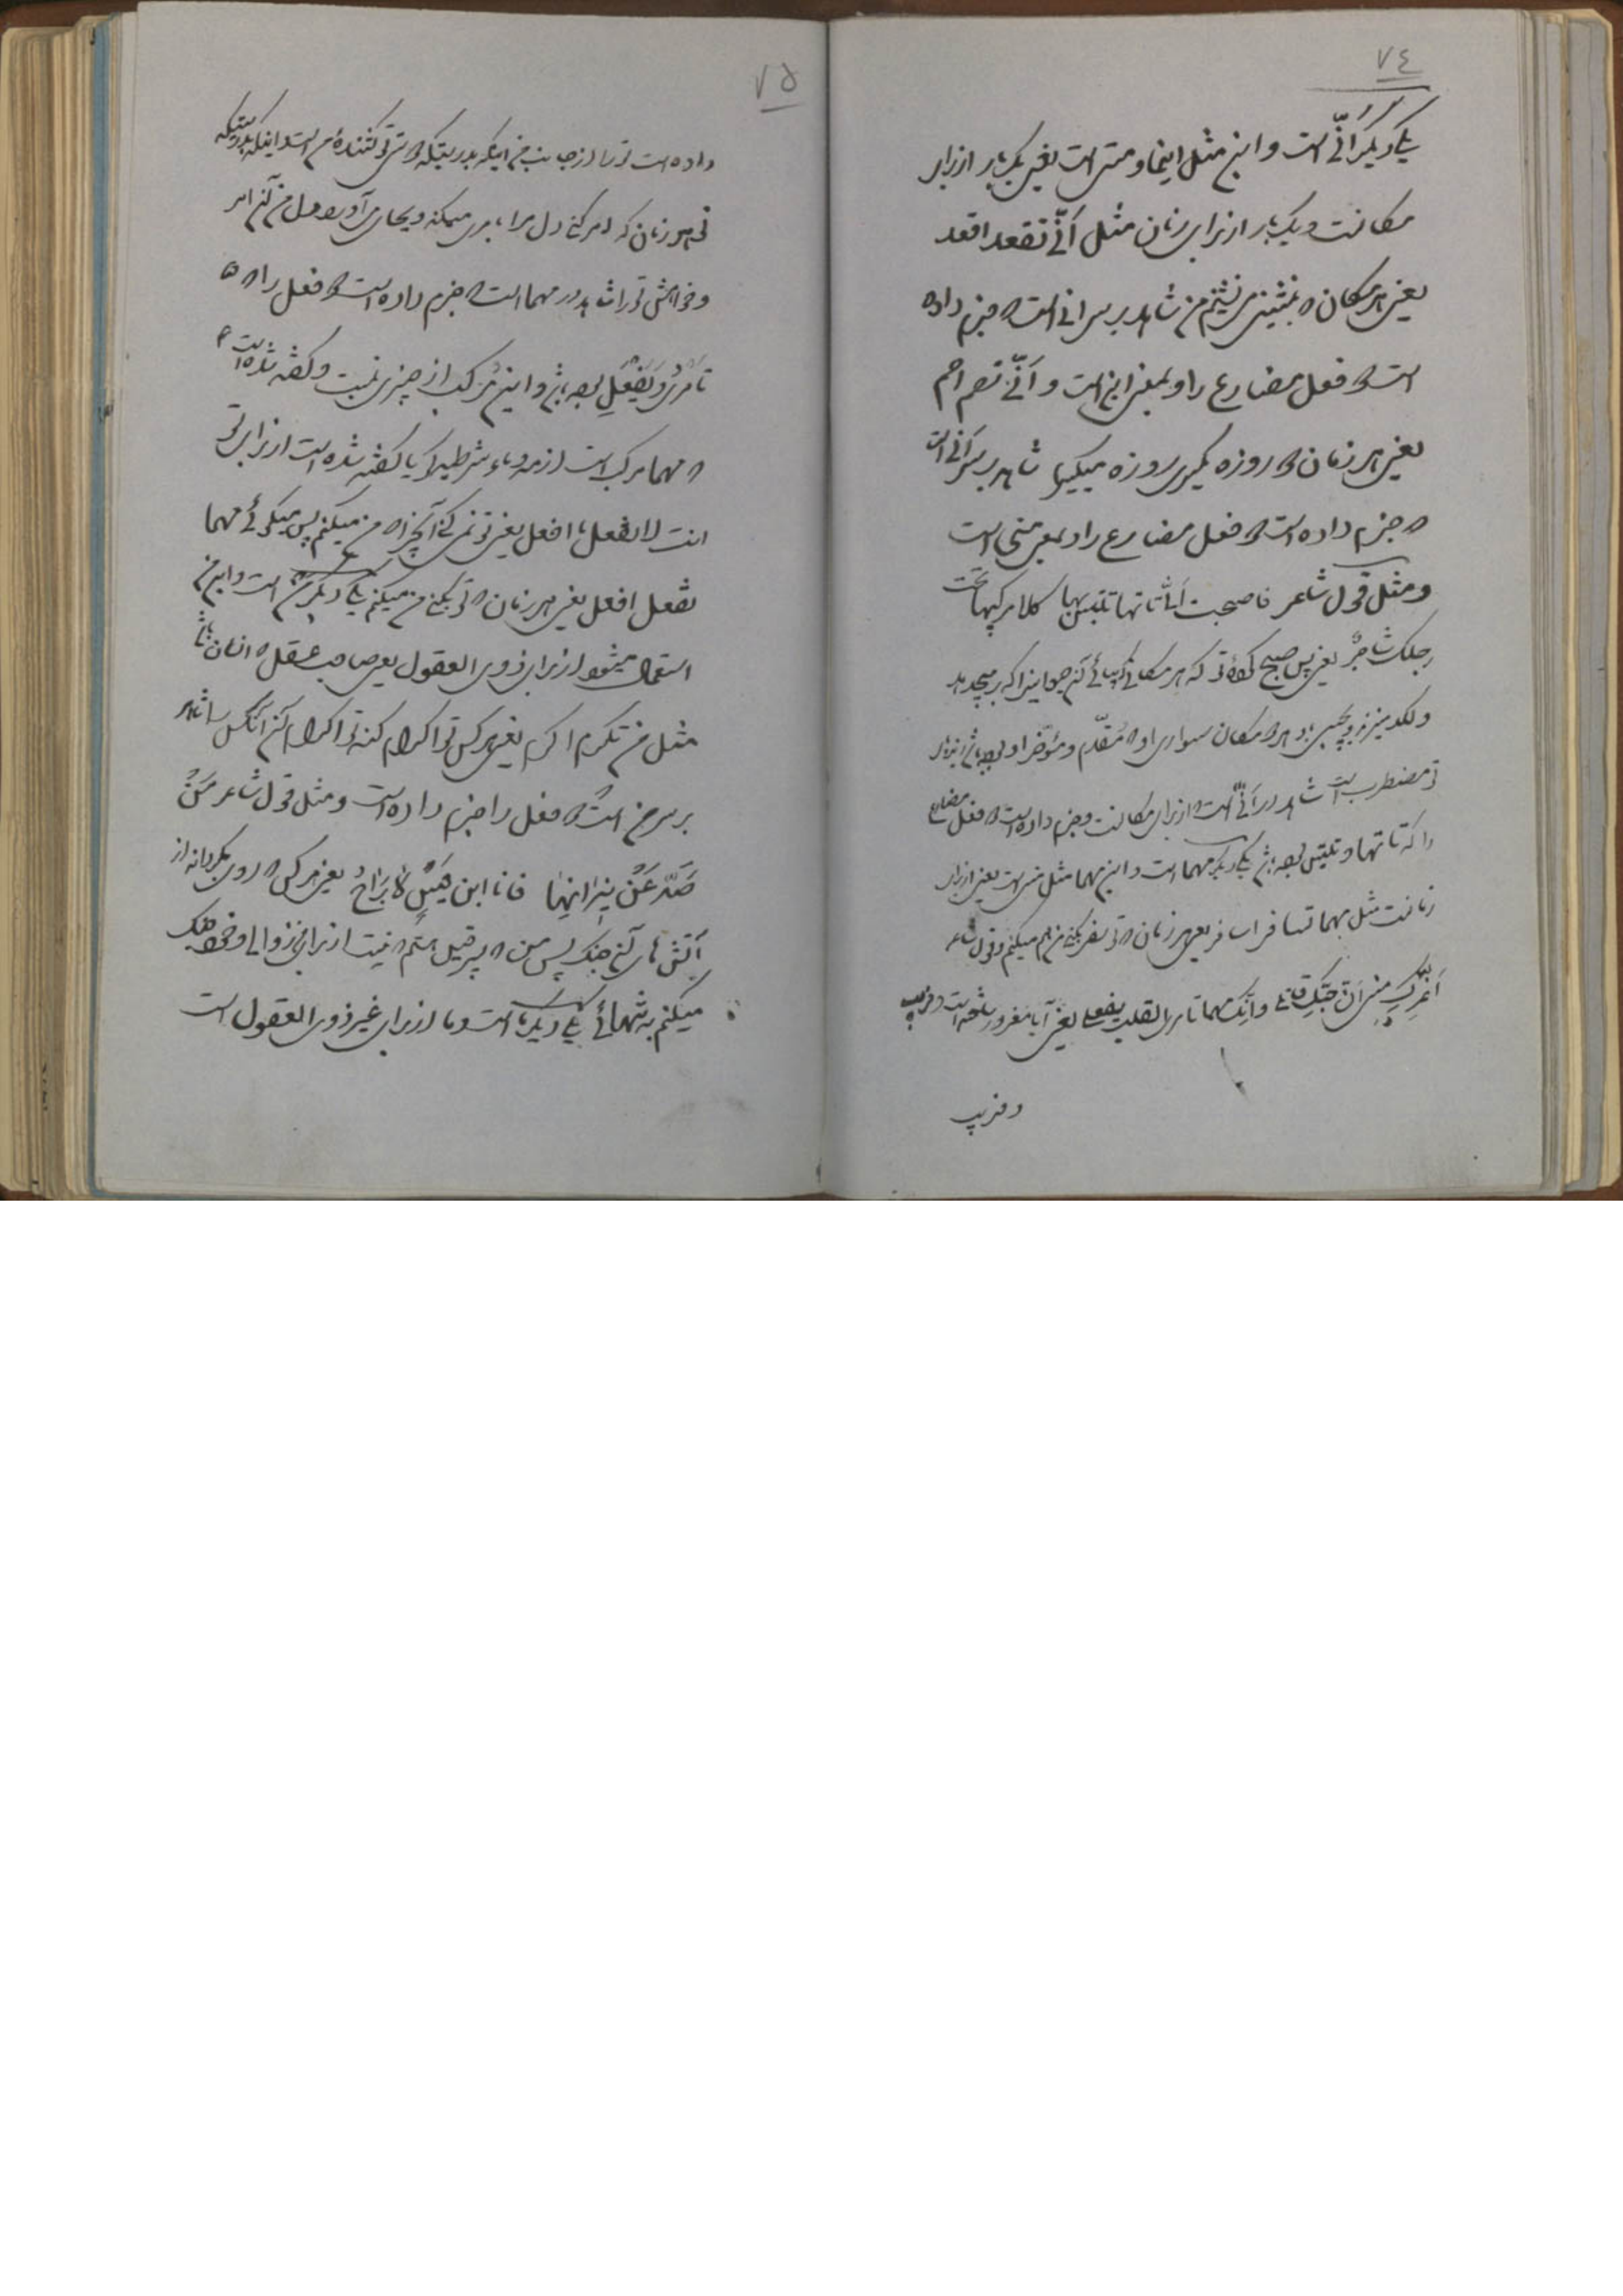 ٧٤
یکی دیگر أنّی است و این مثل اینما و متی است یعنی یکبار از برای
مکانست و یکبار از برای زمان مثل أنّی تقعد اقعد
یعنی هر مکان که بنشینی می‌نشینم من شاهد بر سر انی است که جزم داده
است که فعل مضارع را و بمعنی این است و أنّی تصم اصم
یعنی هر زمان که روزه بگیری روزه میگیرم شاهد بر سر أنی است
که جزم داده است که فعل مضارع را و بمعنی متی است
و مثل قول شاعر فاصبحت أنّی تأتها تلتبس بها کلا مرکبیها تحت
رجلک شاجرٌ یعنی پس صبح کردهٔ تو که هر مکانی که بیائی آن را که
و لگد میزند و هر دو مکان سواری او که مقدّم و مؤخر او بوده باشد از زیر پای
تو مضطرب است شاهد در أنّی است که از برای مکانست و جزم داده است که فعل مضارع
را که تأتها و تلتبس بوده باشد یکی دیگر مهما است و این مهما مثل متی است یعنی از برای
زمانست مثل مهما تسافر اسافر یعنی هر زمان که تو سفر بکنی من هم میکنم و قول شاعر
أغرّک منی انّ حبّک قاتلی وانّک مهما تأمری القلب یفعل یعنی آیا مغرور ساخته است و فریب
و فریب
٧٥
داده است تو را از جانب من اینکه بدرستیکه دوستی تو کشندهٔ من است و اینکه بدرستیکه
تو هر زمان که امر کنی دل مرا بامری میکند و بجای می‌آورد دل من آن امر
و خواهش تو را شاهد در مهما است که جزم داده است که فعل را که
تأمری و یفعل بوده باشد و این مرکب از چیزی نیست و گفته شده است
که مهما مرکب است از مه و ماء شرطیه گویا گفته شده است از برای تو
انت لا تفعل ما افعل یعنی تو نمی‌کنی آنچه را که من میکنم پس میگوئی مهما
تفعل افعل یعنی هر زمان که تو بکنی من میکنم یکی دیگر من است و این من
استعمال میشود از برای ذوی العقول یعنی صاحب عقل که انسان باشد
مثل من تکرم اکرم یعنی هر کس تو اکرام کنی تو اکرام کنم آنکس را شاهد
بر سر من است که فعل را جزم داده است و مثل قول شاعر مَن
صَدّ عَن نیرانها فانا ابن قیسٍ لا بَراحُ یعنی هر کس که روی بگرداند از
آتش های آن جنگ پس من که پسر قیس هستم که نیست از برای من زوالی و خود هلاک
میکنم به تنهائی یکی دیگر ما است و ما از برای غیر ذوی العقول است